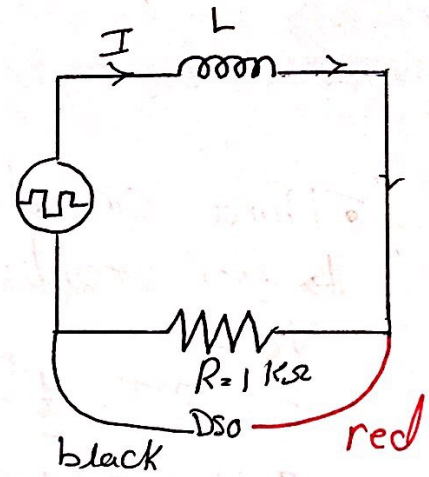 I
L
R=1 KΩ
DSO
black
red